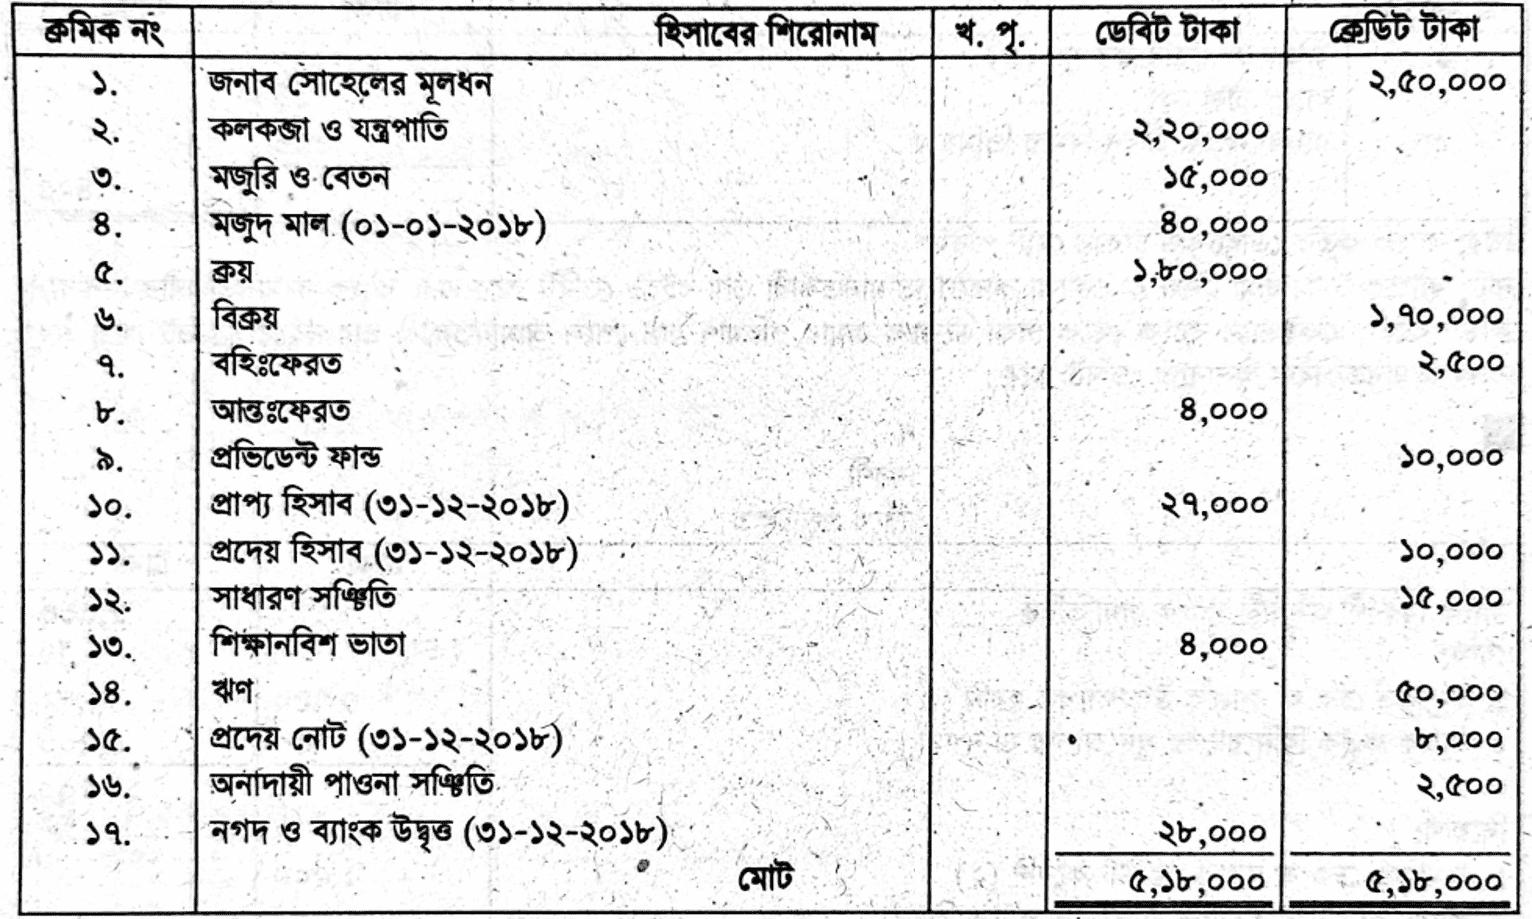 ক্রমিক নং হিসাবের শিরোনাম খ. পৃ. ডেবিট টাকা ক্রেডিট টাকা
১. জনাব সোহেলের মূলধন ২,৫০,০০০
২. কলকব্জা ও যন্ত্রপাতি ২,২০,০০০
৩. মজুরি ও বেতন ১৫,০০০
৪. মজুদ মাল (০১-০১-২০১৮) ৪০,০০০
৫. ক্রয় ১,৮০,০০০
৬. বিক্রয় ১,৭০,০০০
৭. বহিঃফেরত ২,৫০০
৮. আন্তঃফেরত ৪,০০০
৯. প্রভিডেন্ট ফান্ড ১০,০০০
১০. প্রাপ্য হিসাব (৩১-১২-২০১৮) ২৭,০০০
১১. প্রদেয় হিসাব (৩১-১২-২০১৮) ১০,০০০
১২. সাধারণ সঞ্চিতি ১৫,০০০
১৩. শিক্ষানবিশ ভাতা ৪,০০০
১৪. ঋণ ৫০,০০০
১৫. প্রদেয় নোট (৩১-১২-২০১৮) ৮,০০০
১৬. অনাদায়ী পাওনা সঞ্চিতি ২,৫০০
১৭. নগদ ও ব্যাংক উদ্বৃত্ত (৩১-১২-২০১৮) ২৮,০০০
মোট ৫,১৮,০০০ ৫,১৮,০০০